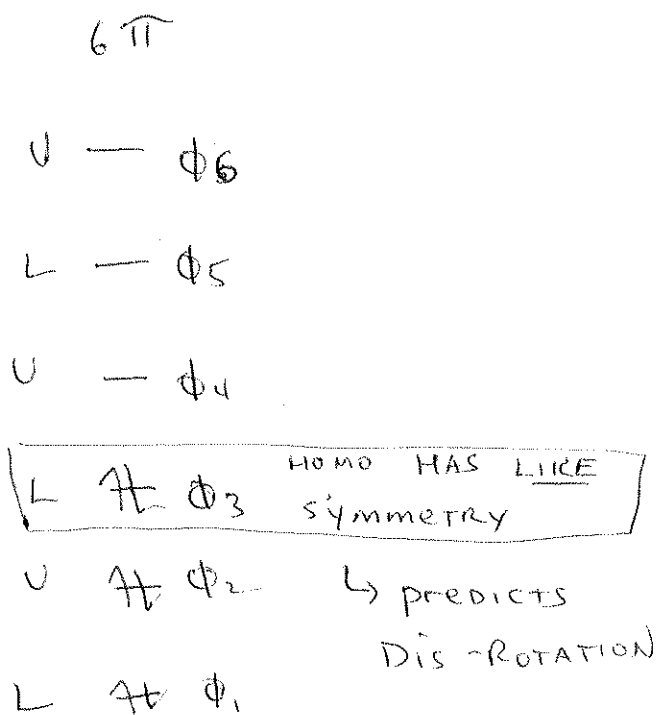 6 π
U — ϕ6
L — ϕ5
U — ϕ4
L ⥮ ϕ3 HOMO HAS LIKE
SYMMETRY
U ⥮ ϕ2 ↳ PREDICTS
DIS-ROTATION
L ⥮ ϕ1